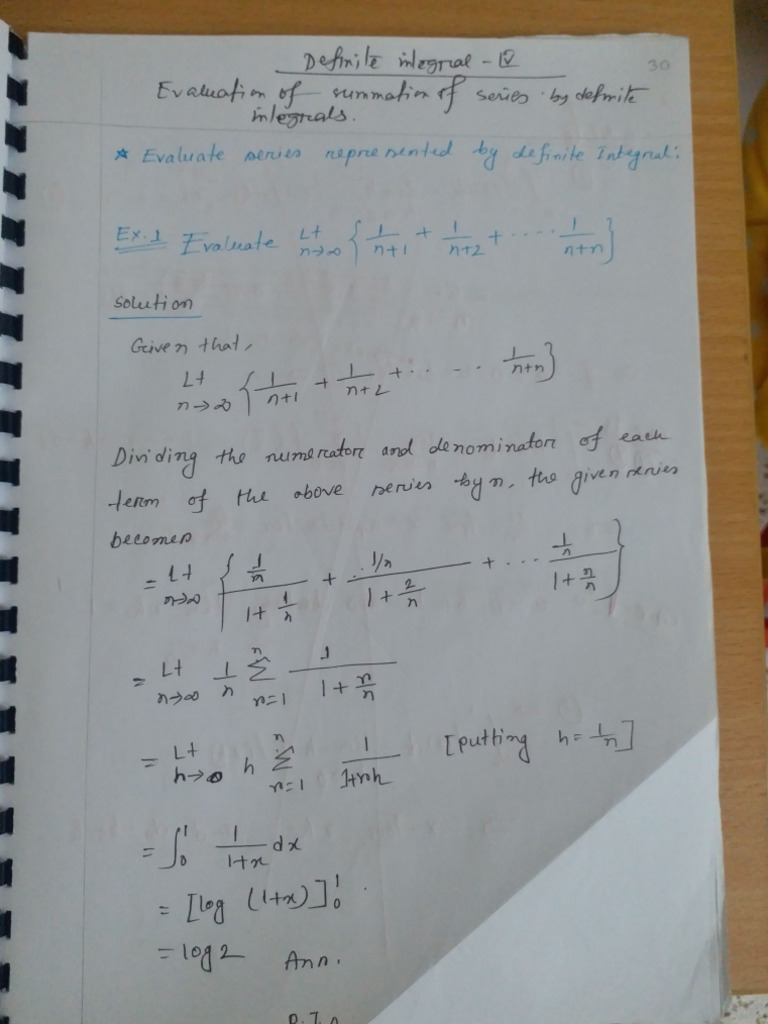 Definite integral - IV
30
Evaluation of summation of series by definite
integrals.
* Evaluate series represented by definite Integral:
Ex.1 Evaluate Lt n→∞ { 1/(n+1) + 1/(n+2) + ..... 1/(n+n) }
Solution
Given that,
Lt n→∞ { 1/(n+1) + 1/(n+2) + .. - .. 1/(n+n) }
Dividing the numerator and denominator of each
term of the above series by n, the given series
becomes
= Lt n→∞ { (1/n)/(1+1/n) + (1/n)/(1+2/n) + ... (1/n)/(1+n/n) }
= Lt n→∞ 1/n Σ r=1 n 1/(1+r/n)
= Lt h→0 h Σ r=1 n 1/(1+rh) [putting h = 1/n]
= ∫₀¹ 1/(1+x) dx
= [log (1+x)]₀¹
= log 2 Ans.